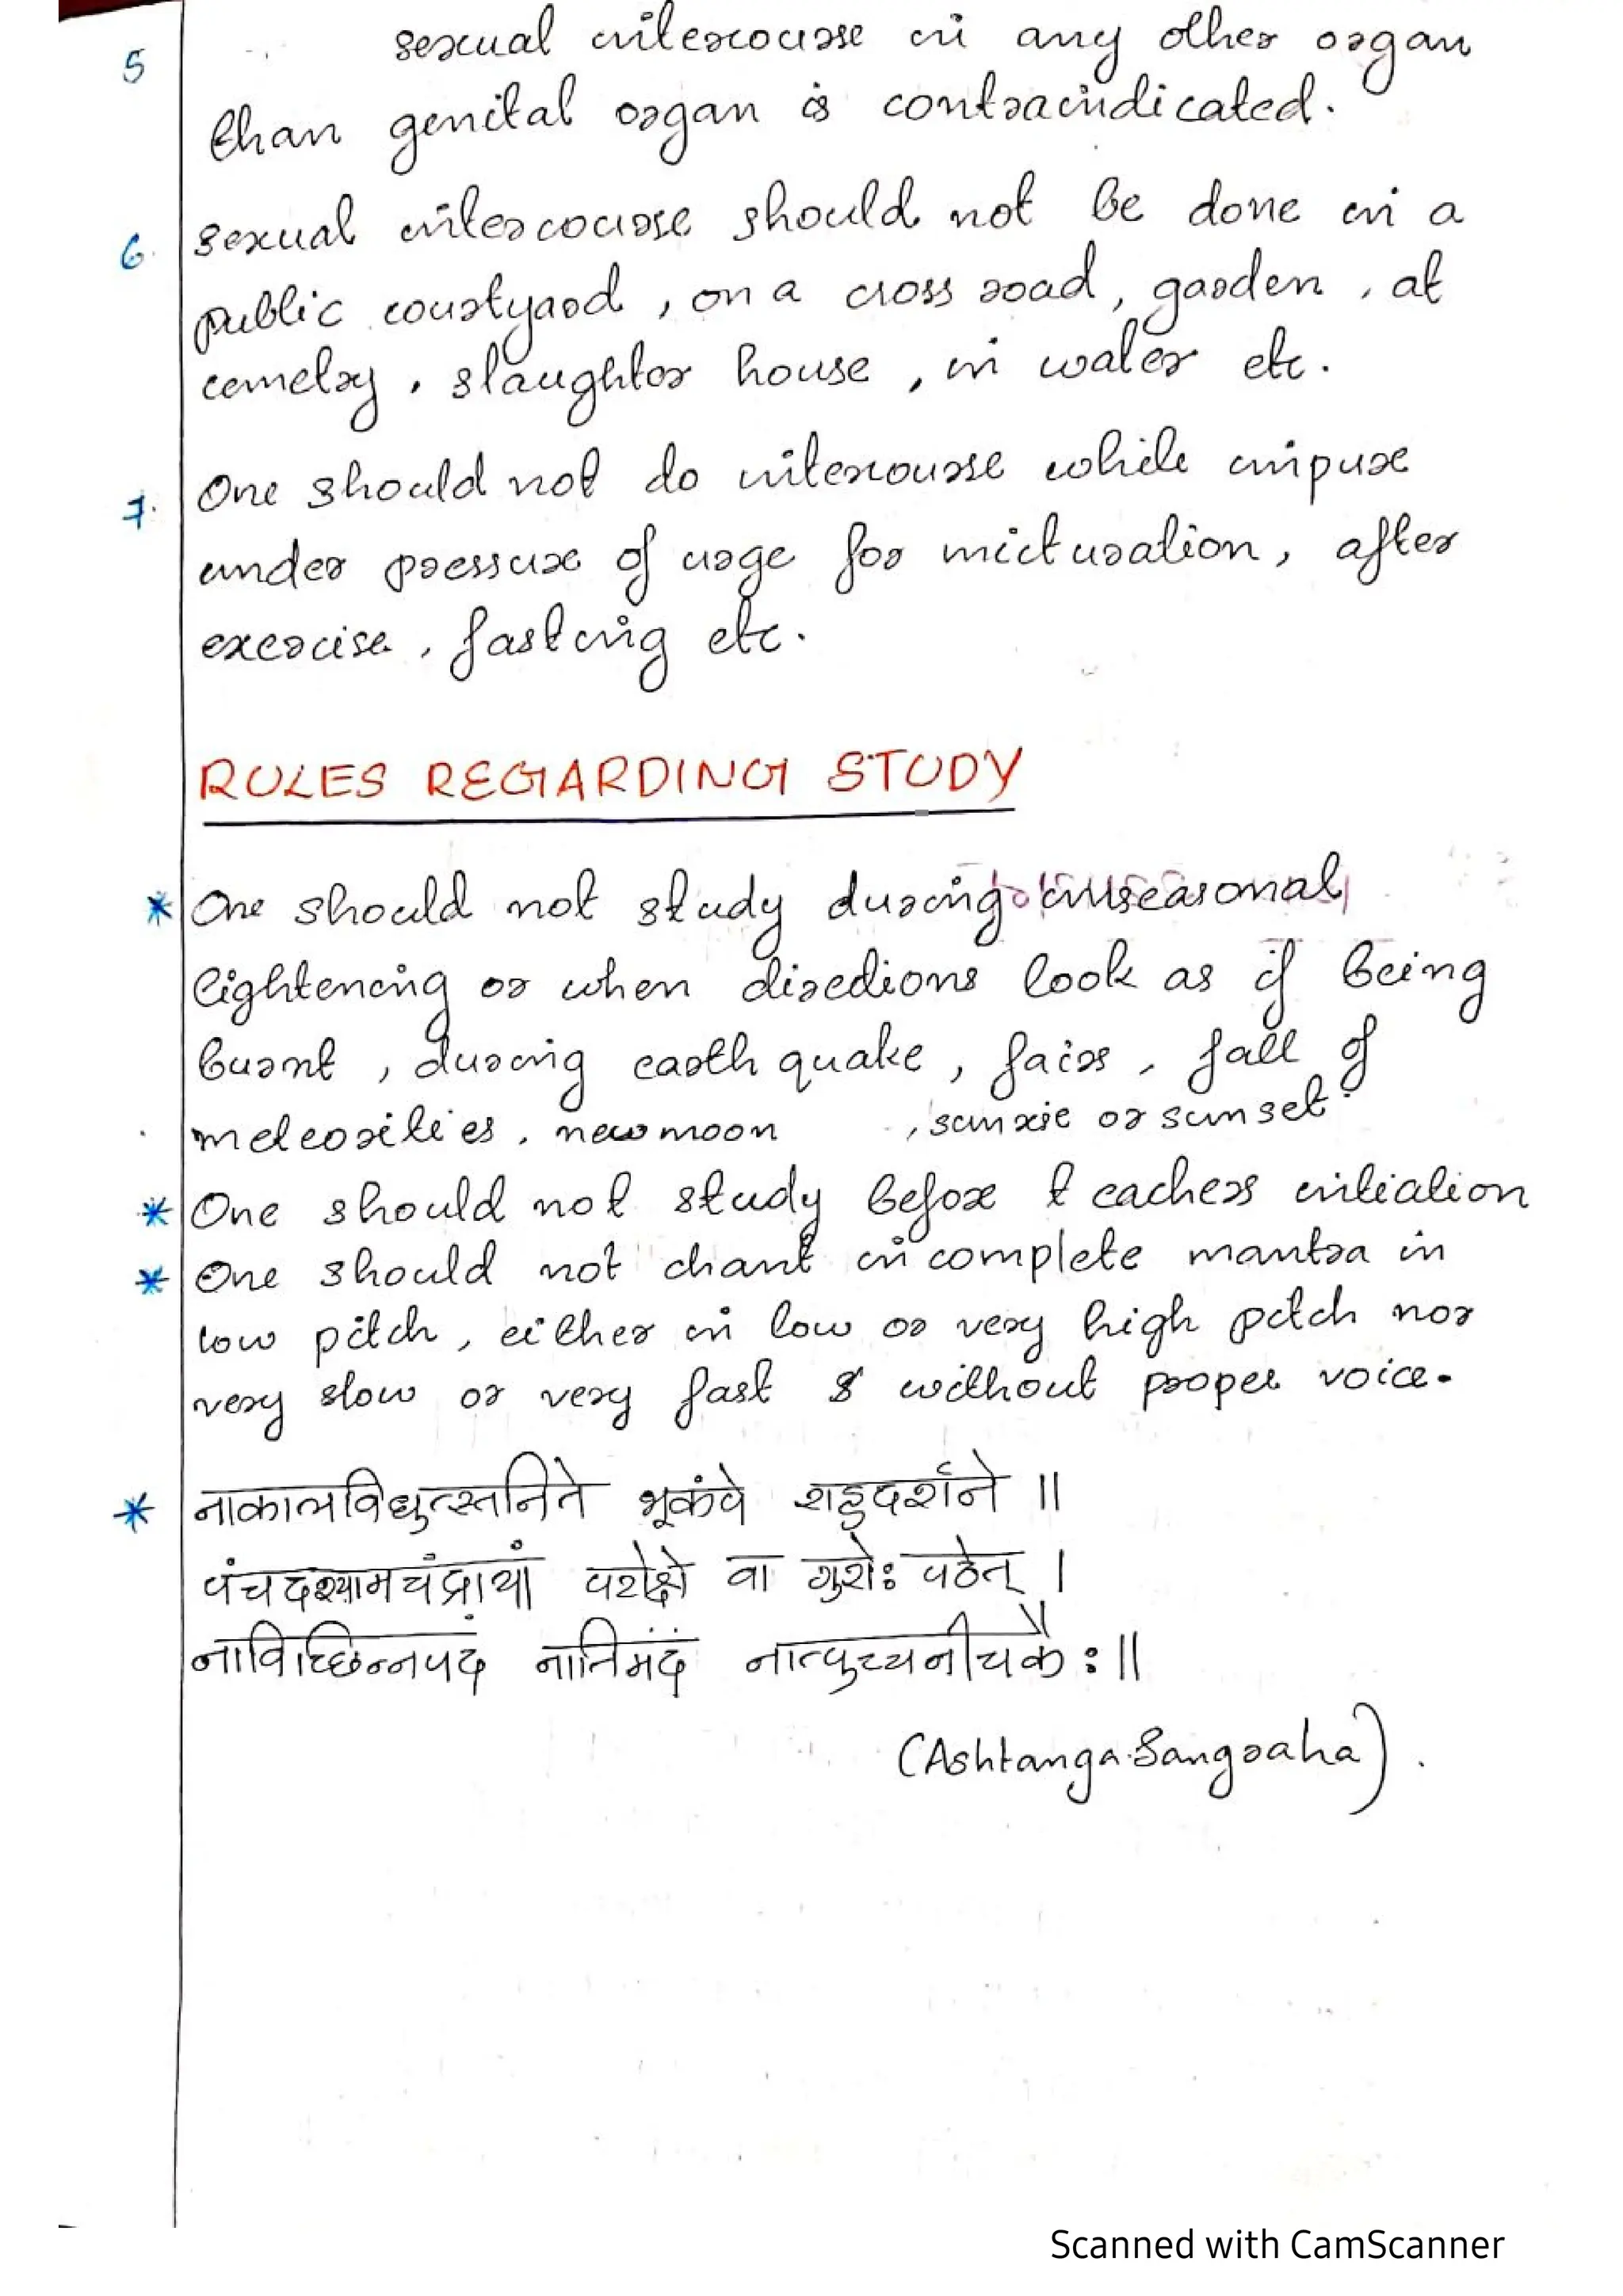 5 sexual intercourse in any other organ
than genital organ is contraindicated.
6. sexual intercourse should not be done in a
public courtyard, on a cross road, garden, at
cemetry, slaughter house, in water etc.
7. One should not do intercourse while impure
under pressure of urge for micturation, after
exercise, fasting etc.
RULES REGARDING STUDY
* One should not study during unseasonal
lightening or when directions look as if being
burnt, during earth quake, fairs, fall of
meteorities, new moon, sunrise or sunset.
* One should not study before teachers initiation
* One should not chant incomplete mantra in
low pitch, either in low or very high pitch nor
very slow or very fast & without proper voice.
* नाकालविद्युत्स्तनिते भूकंपे राहुदर्शने ॥
पंचदश्यामचंद्रायां परोक्षे वा गुरोः पठेत् ।
नाविच्छिन्नपदं नातिमंदं नात्युच्चनीचकैः ॥
(Ashtanga Sangraha).
Scanned with CamScanner